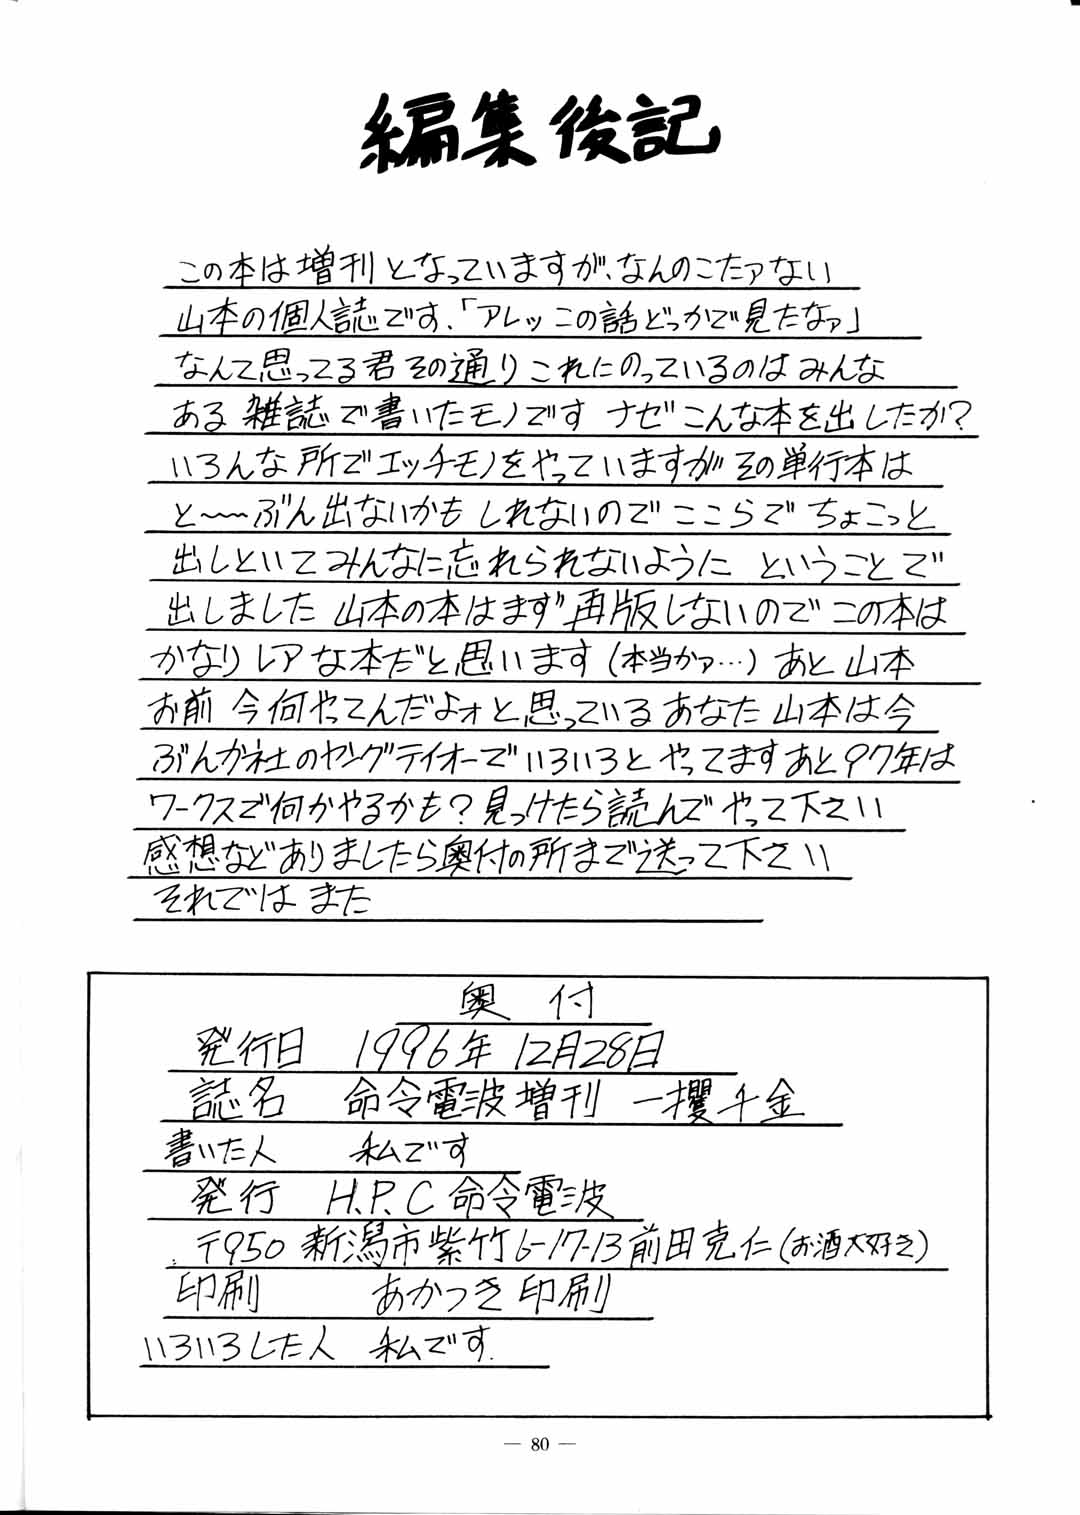 編集後記
この本は増刊となっていますが、なんのこたァない
山本の個人誌です、「アレッこの話どっかで見たなァ」
なんて思ってる君その通りこれにのっているのはみんな
ある雑誌で書いたモノです ナゼこんな本を出したか?
いろんな所でエッチモノをやっていますがその単行本は
と〜〜ぶん出ないかもしれないのでここらでちょこっと
出しといてみんなに忘れられないように ということで
出しました 山本の本はまず再版しないのでこの本は
かなりレアな本だと思います(本当かァ…)あと山本
お前 今何やってんだよォと思っているあなた山本は今
ぶんか社のヤングテイオーでいろいろとやってますあと97年は
ワークスで何かやるかも?見つけたら読んでやって下さい
感想などありましたら奥付の所まで送って下さい
それではまた
奥付
発行日 1996年12月28日
誌名 命令電波増刊 一攫千金
書いた人 私です
発行 H.P.C命令電波
〒950 新潟市紫竹6-17-13前田克仁(お酒大好き)
印刷 あかつき印刷
いろいろした人 私です.
— 80 —